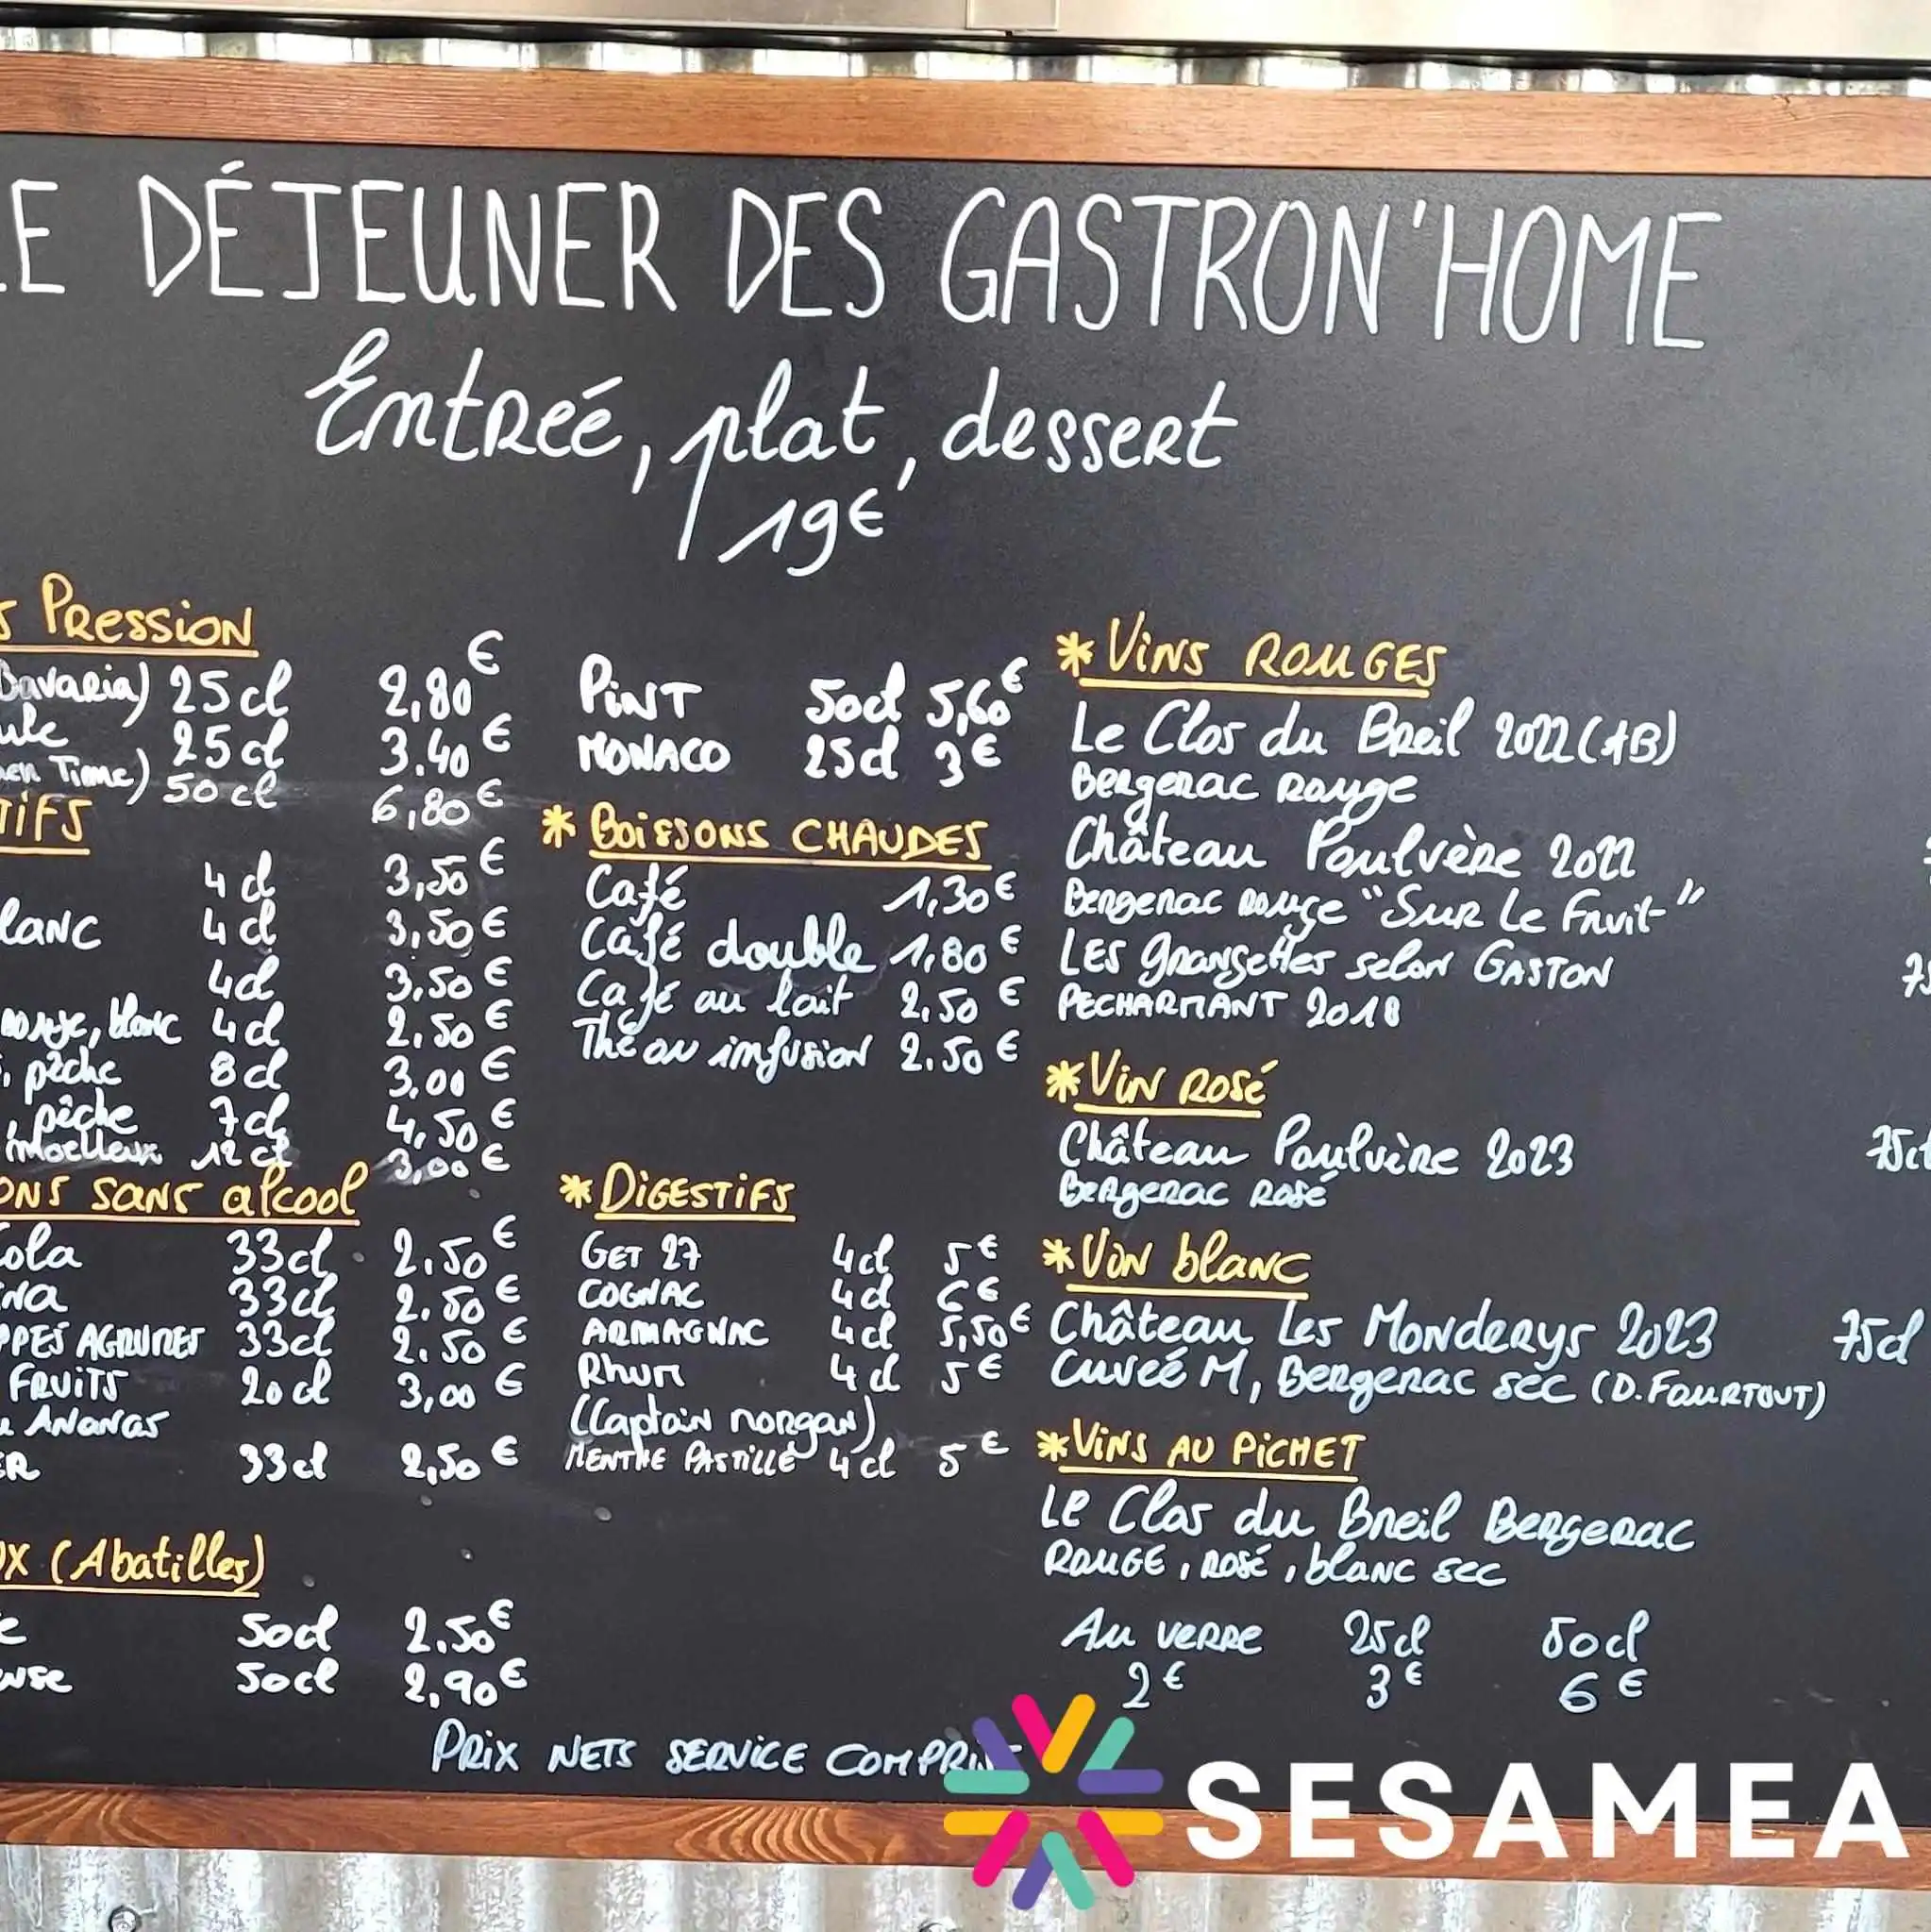 LE DÉJEUNER DES GASTRON'HOME
Entreé, plat, dessert
19€
Pression
(Bavaria) 25cl 2,80€
25cl 3.40€
Time) 50cl 6,80€
4cl 3,50€
blanc 4cl 3,50€
4cl 3,50€
rouge, blanc 4cl 2,50€
, pêche 8cl 3,00€
, pêche 7cl 4,50€
moelleux 12cl 3,00€
SANS alcool
cola 33cl 2,50€
33cl 2,50€
AGRUMES 33cl 2.50€
FRUITS 20cl 3,00€
ANANAS
33cl 2,50€
(Abatilles)
50cl 2.50€
50cl 2,90€
PINT 50cl 5,60€
MONACO 25cl 3€
* BOISSONS CHAUDES
Café 1,30€
Café double 1,80€
Café au lait 2,50€
Thé ou infusion 2.50€
* DIGESTIFS
GET 27 4cl 5€
COGNAC 4cl 6€
ARMAGNAC 4cl 5,50€
Rhum 4cl 5€
(Captain morgan)
MENTHE PASTILLE 4cl 5€
* VINS ROUGES
Le Clos du Breil 2022 (AB)
Bergerac Rouge
Château Poulvère 2022
Bergerac rouge "Sur Le Fruit"
LES grangettes selon GASTON
PECHARMANT 2018
* VIN ROSÉ
Château Poulvère 2023 75cl
Bergerac Rosé
* Vin blanc
Château Les Monderys 2023 75cl
Cuveé M, Bergerac sec (D. FOURTOUT)
* VINS AU PICHET
LE Clos du Breil Bergerac
ROUGE, ROSÉ, blanc sec
Au verre 25cl 50cl
2€ 3€ 6€
PRIX NETS SERVICE COMPRIS
SESAMEA